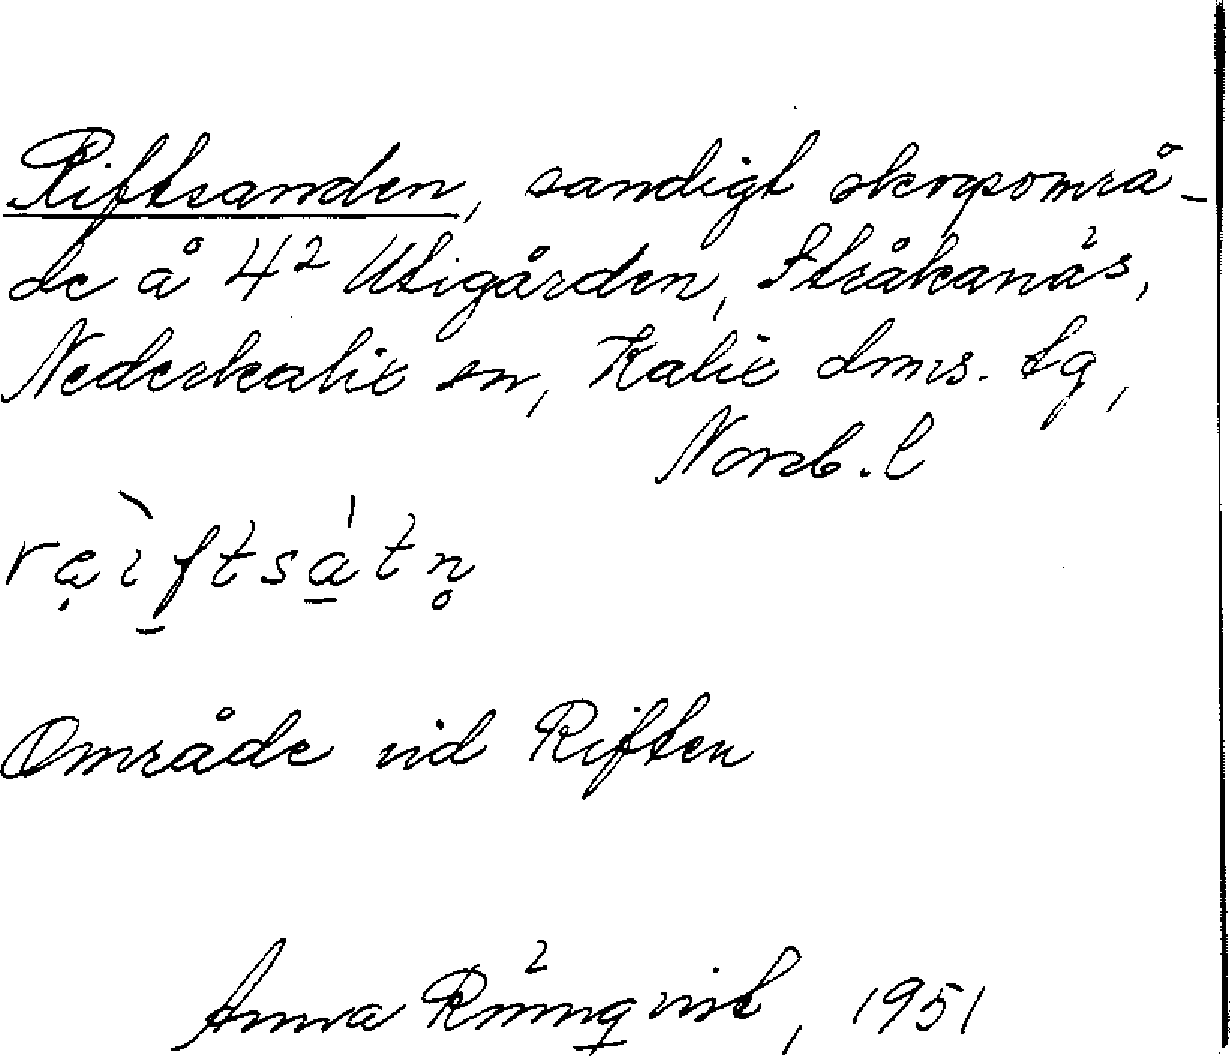 Riftsanden, sandigt skogsområ-
de å 4² Utigården, Stråkanäs,
Nederkalix sn, Kalix dms. tg,
Norrb. l
rạìftsátn̥
Område vid Riften
Anna Rönnqvist, 1951